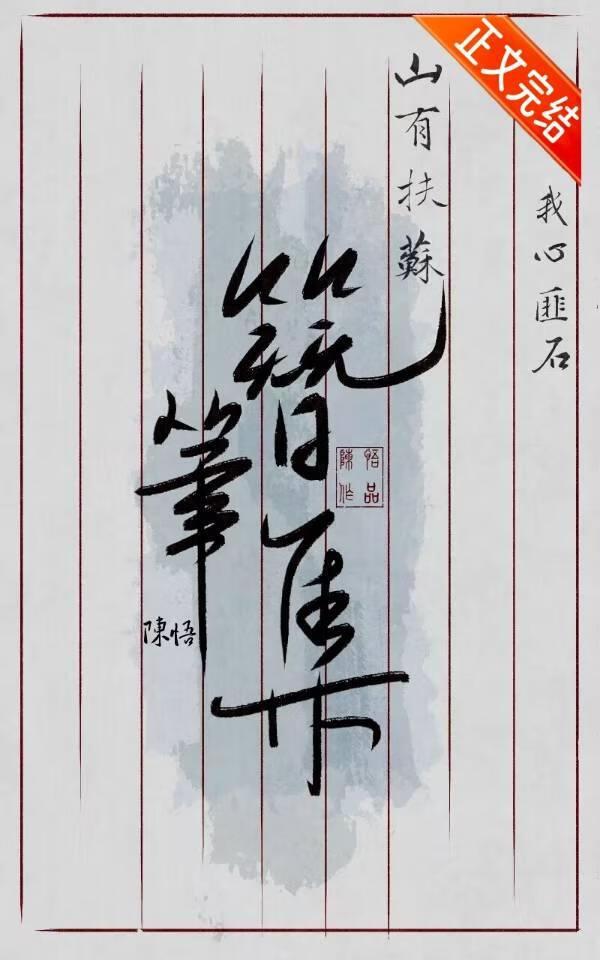 正文完结
我心匪石
山有扶蘇
簪筆集
陳悟
陳悟作品